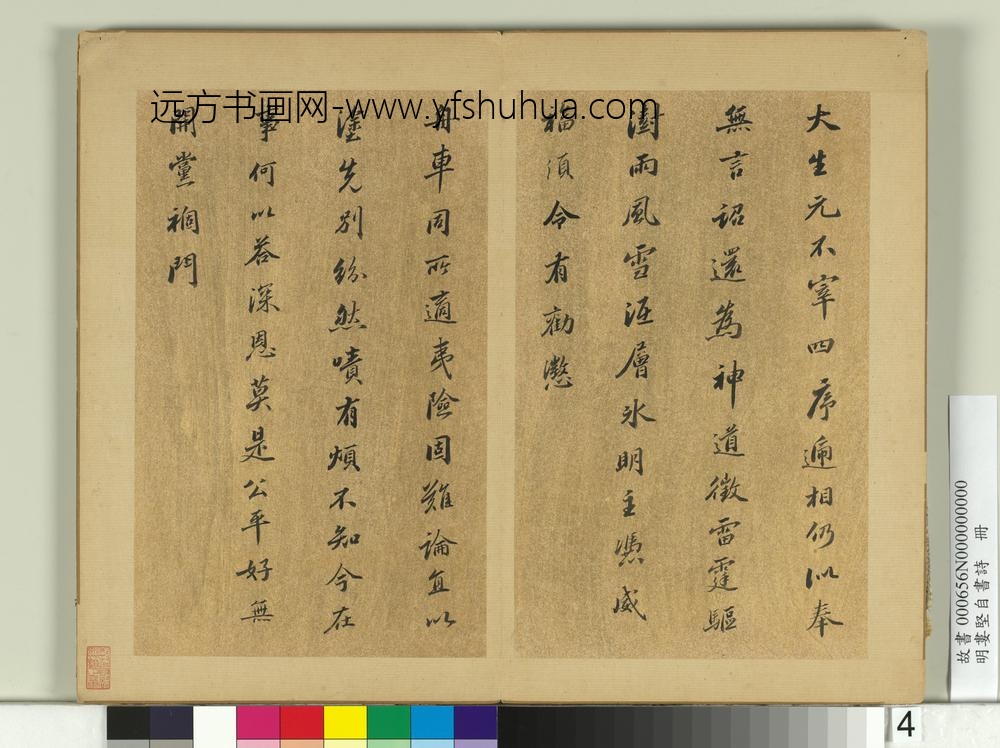 远方书画网-www.yfshuhua.com
大生元不宰四序遞相仍以奉
無言詔還為神道徵雷霆驅
澍雨風雪沍層氷明主憑威
福須令有勸懲
舟車同所適夷險固難論直以
塗先別紛然嘖有煩不知今在
事何以答深恩莫是公平好無
開黨禍門
故書000656N000000000
明婁堅自書詩 冊
4